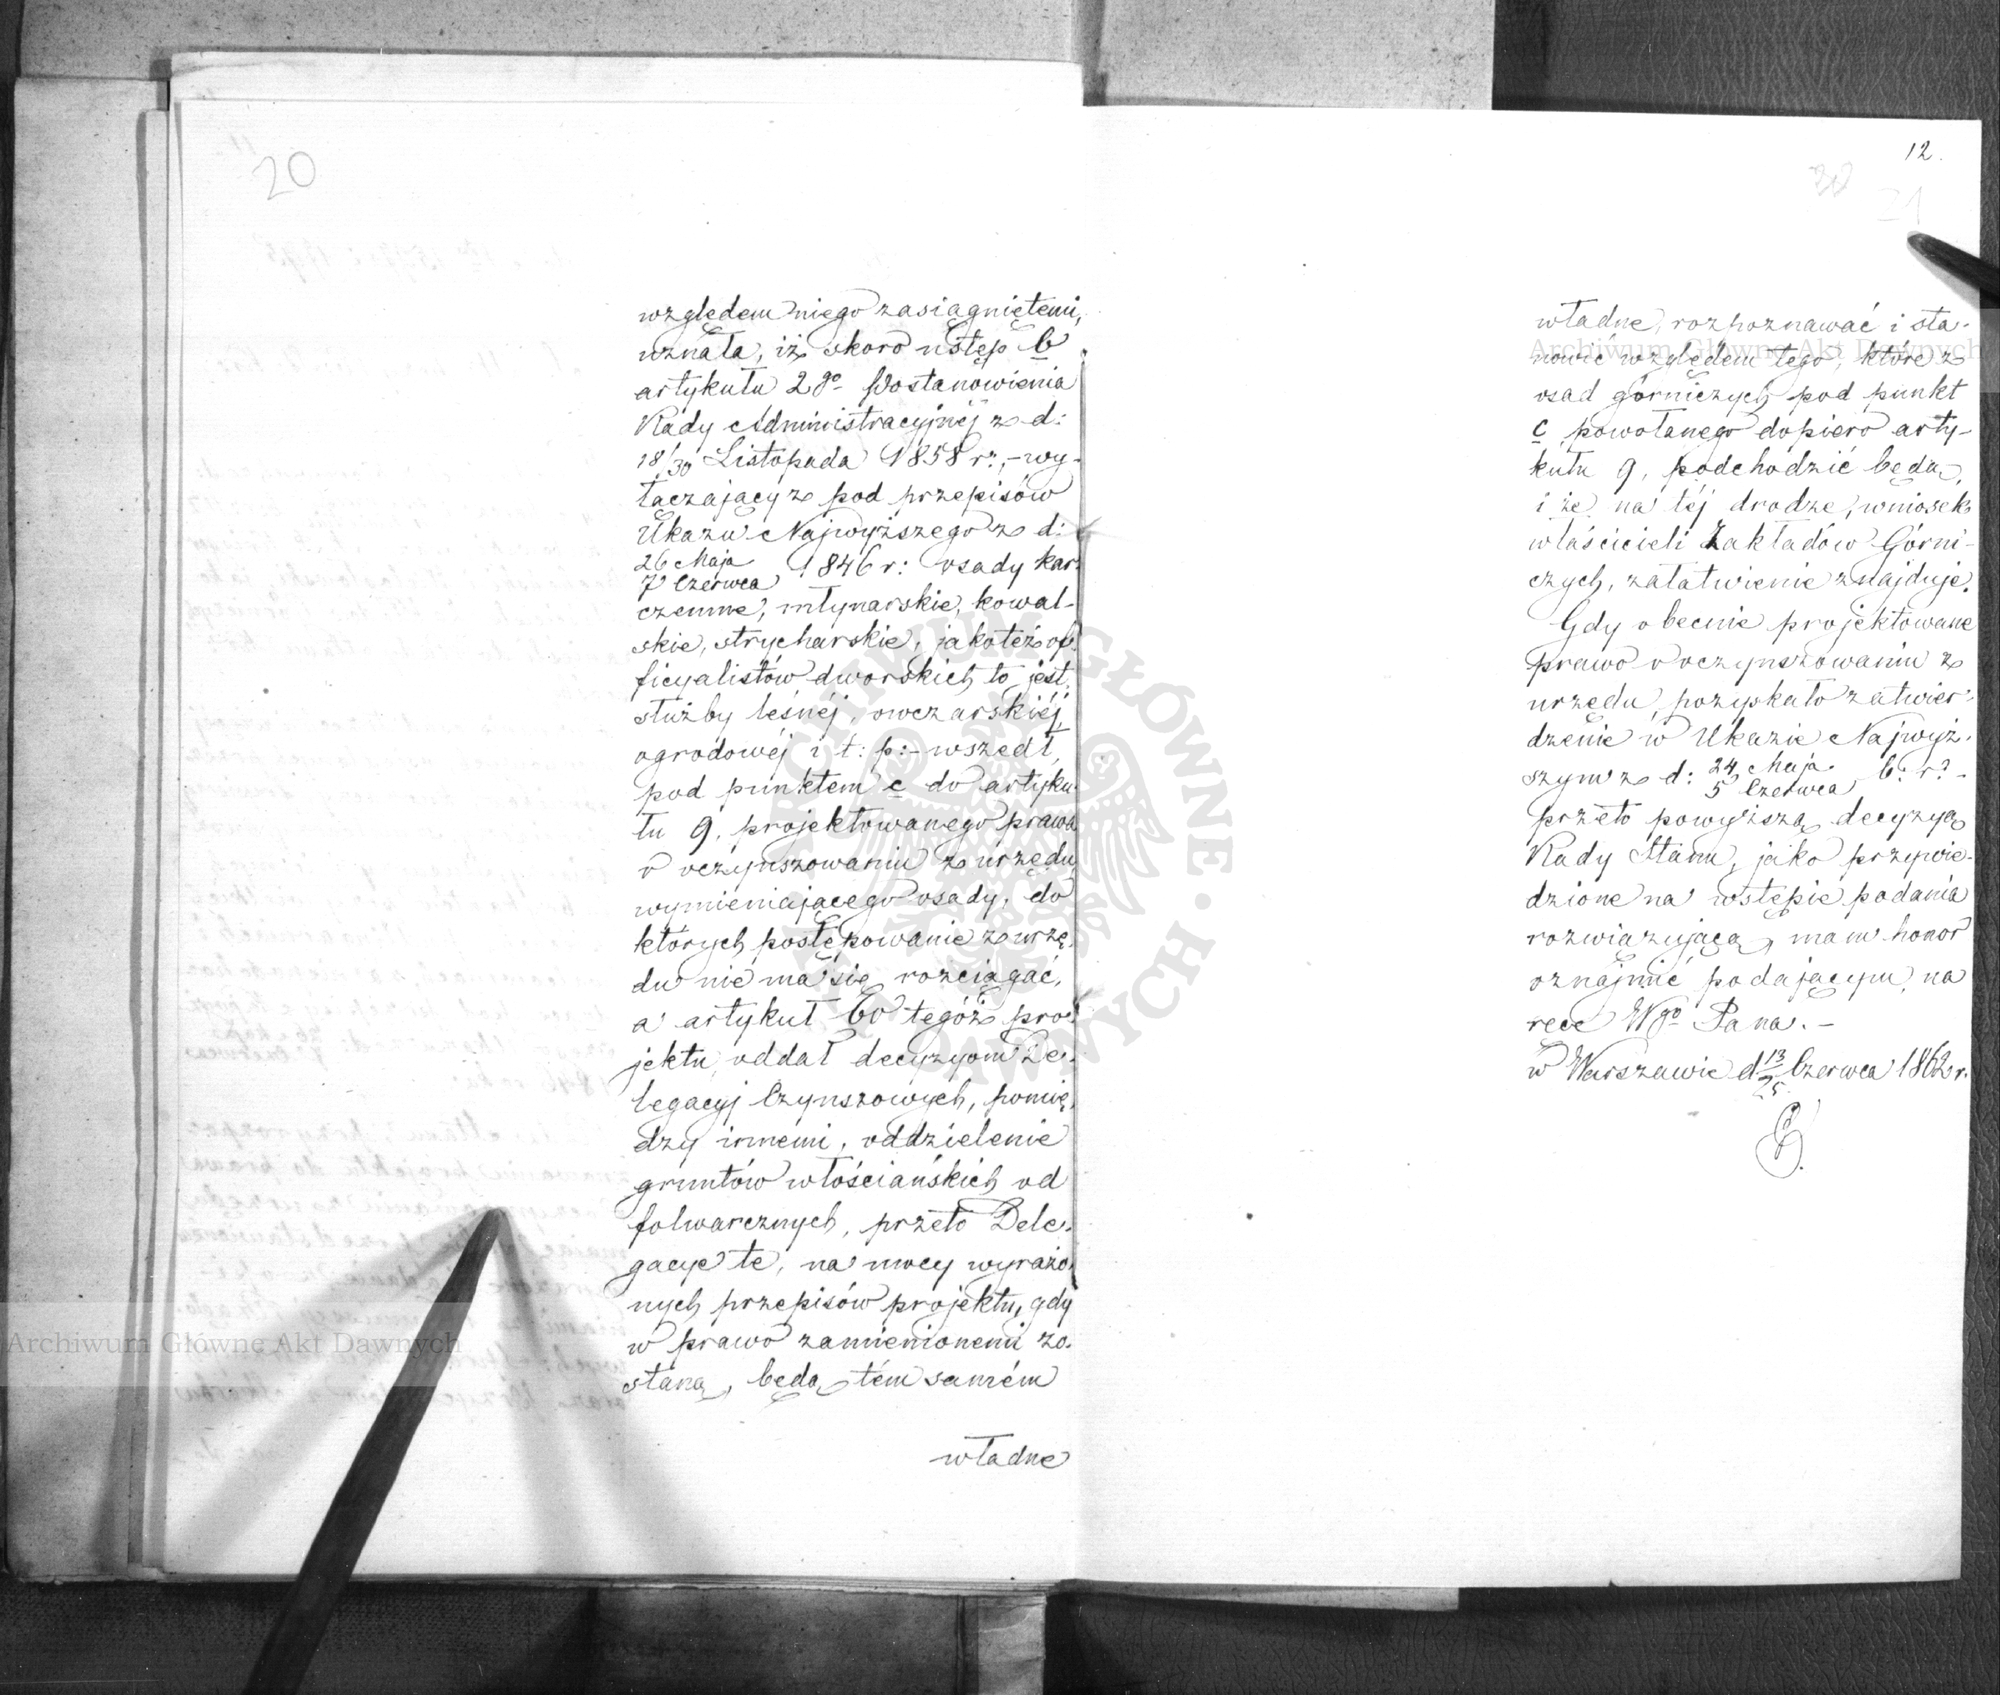 20
względem niego zasiągniętemi,
uznała, iż skoro ustęp b
artykułu 2go Postanowienia
Rady Administracyjnéj z d:
18/30 Listopada 1858 r., – wy-
łączający z pod przepisów
Ukazu Najwyższego z d:
26 Maja
7 Czerwca 1846 r: osady kar-
czemne, młynarskie, kowal-
skie, strycharskie, jakotéż of-
ficyalistów dworskich to jest,
służby leśnéj, owczarskiéj,
ogrodowéj i t: p: – wszedł
pod punktem c do artyku-
łu 9. projektowanego prawa
o oczynszowaniu z urzędu,
wymieniającego osady, do
których postępowanie z urzę-
du nie ma się rozciągać,
a artykuł 60 tegóż pro-
jektu, oddał decyzyom De-
legacyj Czynszowych, pomię-
dzy innémi, oddzielenie
gruntów włościańskich od
folwarcznych, przeto Dele-
gacye te, na mocy wyrażo-
nych przepisów projektu, gdy
w prawo zamienionemi zo-
staną, będą tém samém
władne
12.
21
władne, rozpoznawać i sta-
nowić względem tego, które z
osad górniczych pod punkt
c powołanego dopiero arty-
kułu 9, podchodzić będą,
i że na téj drodze, wniosek
właścicieli Zakładów Górni-
czych, załatwienie znajduje.
Gdy obecnie projektowane
prawo o oczynszowaniu z
urzędu, pozyskało zatwier-
dzenie w Ukazie Najwyż-
szym z d: 24 Maja
5 Czerwca b: r: –
przeto powyższą decyzyą
Rady Stanu, jako przywie-
dzione na wstępie podania
rozwiązującą, mam honor
oznajmić podającym, na
ręce Wgo Pana. –
w Warszawie d 13/25 Czerwca 1862 r.
Archiwum Główne Akt Dawnych
Archiwum Główne Akt Dawnych
ARCHIWUM GŁÓWNE AKT DAWNYCH